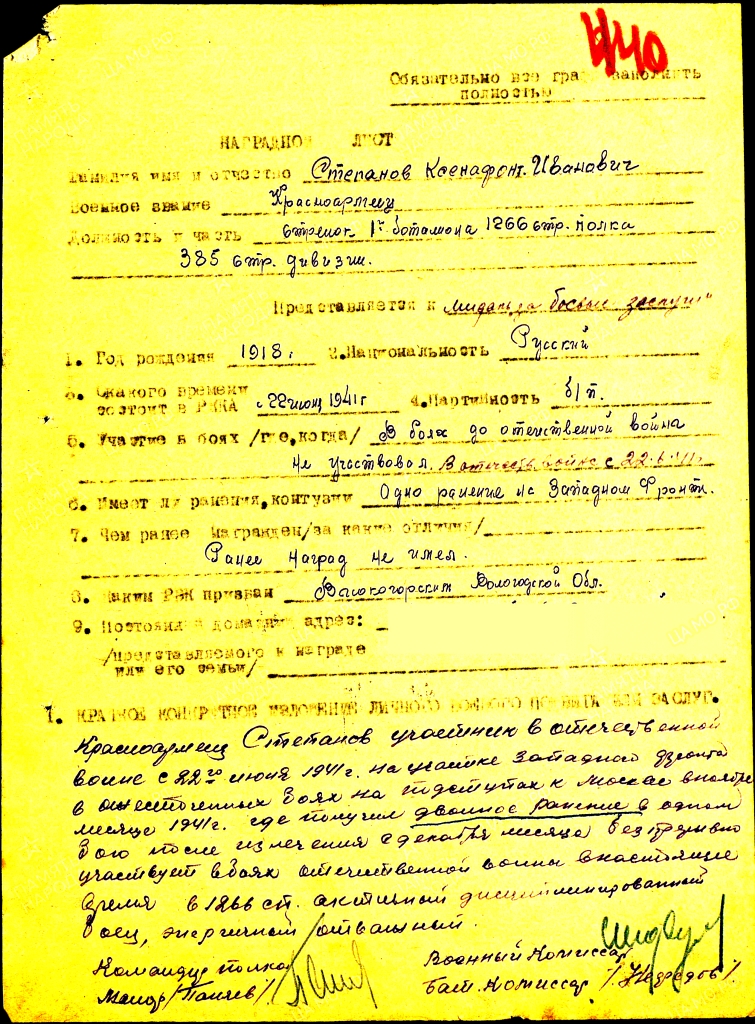 440
Обязательно все граф заполнить
полностью
НАГРАДНОЙ ЛИСТ
Фамилия имя и отчество Степанов Ксенафонт Иванович
Военное звание Красноармец
Должность и часть стрелок 1го баталиона 1266 стр. полка
385 стр. дивизии.
Представляется к медаль "за боевые заслуги"
1. Год рождения 1918 г. 2. Национальность Русский
3. Скакого времени
состоит в РККА с 22 июня 1941 г 4. Партийность б/п.
5. Участие в боях /где, когда/ В боях до отечественной война
не участвовал. В отечеств. войне с 22.6.41 г.
6. Имеет ли ранения, контузии Одно ранение на Западном Фронт.
7. Чем ранее награжден/за какие отличия/
Ранее наград не имел.
8. Каким РВК призван Вологодской Обл.
9. Постоянный домашний адрес:
/представляемого к награде
или его семьи/
1. КРАТКОЕ КОНКРЕТНОЕ ИЗЛОЖЕНИЕ ЛИЧНОГО БОЕВОГО ПОДВИГА ИЛИ ЗАСЛУГ.
Красноармец Степанов участник в отечественной
войне с 22го июня 1941 г. на участке Западного фронта
в ожесточенных боях на подступах к Москве в ноябре
месяце 1941 г. где получил двойное ранение в одном
бою после излечения с декабря месяца безпрерывно
участвует в боях отечественной войны в настоящие
время в 1266 сп. активный дисциплинированный
боец, энергичный отважный.
Командир полка Военный Комиссар
Майор /Паничев/ Бат. Комиссар